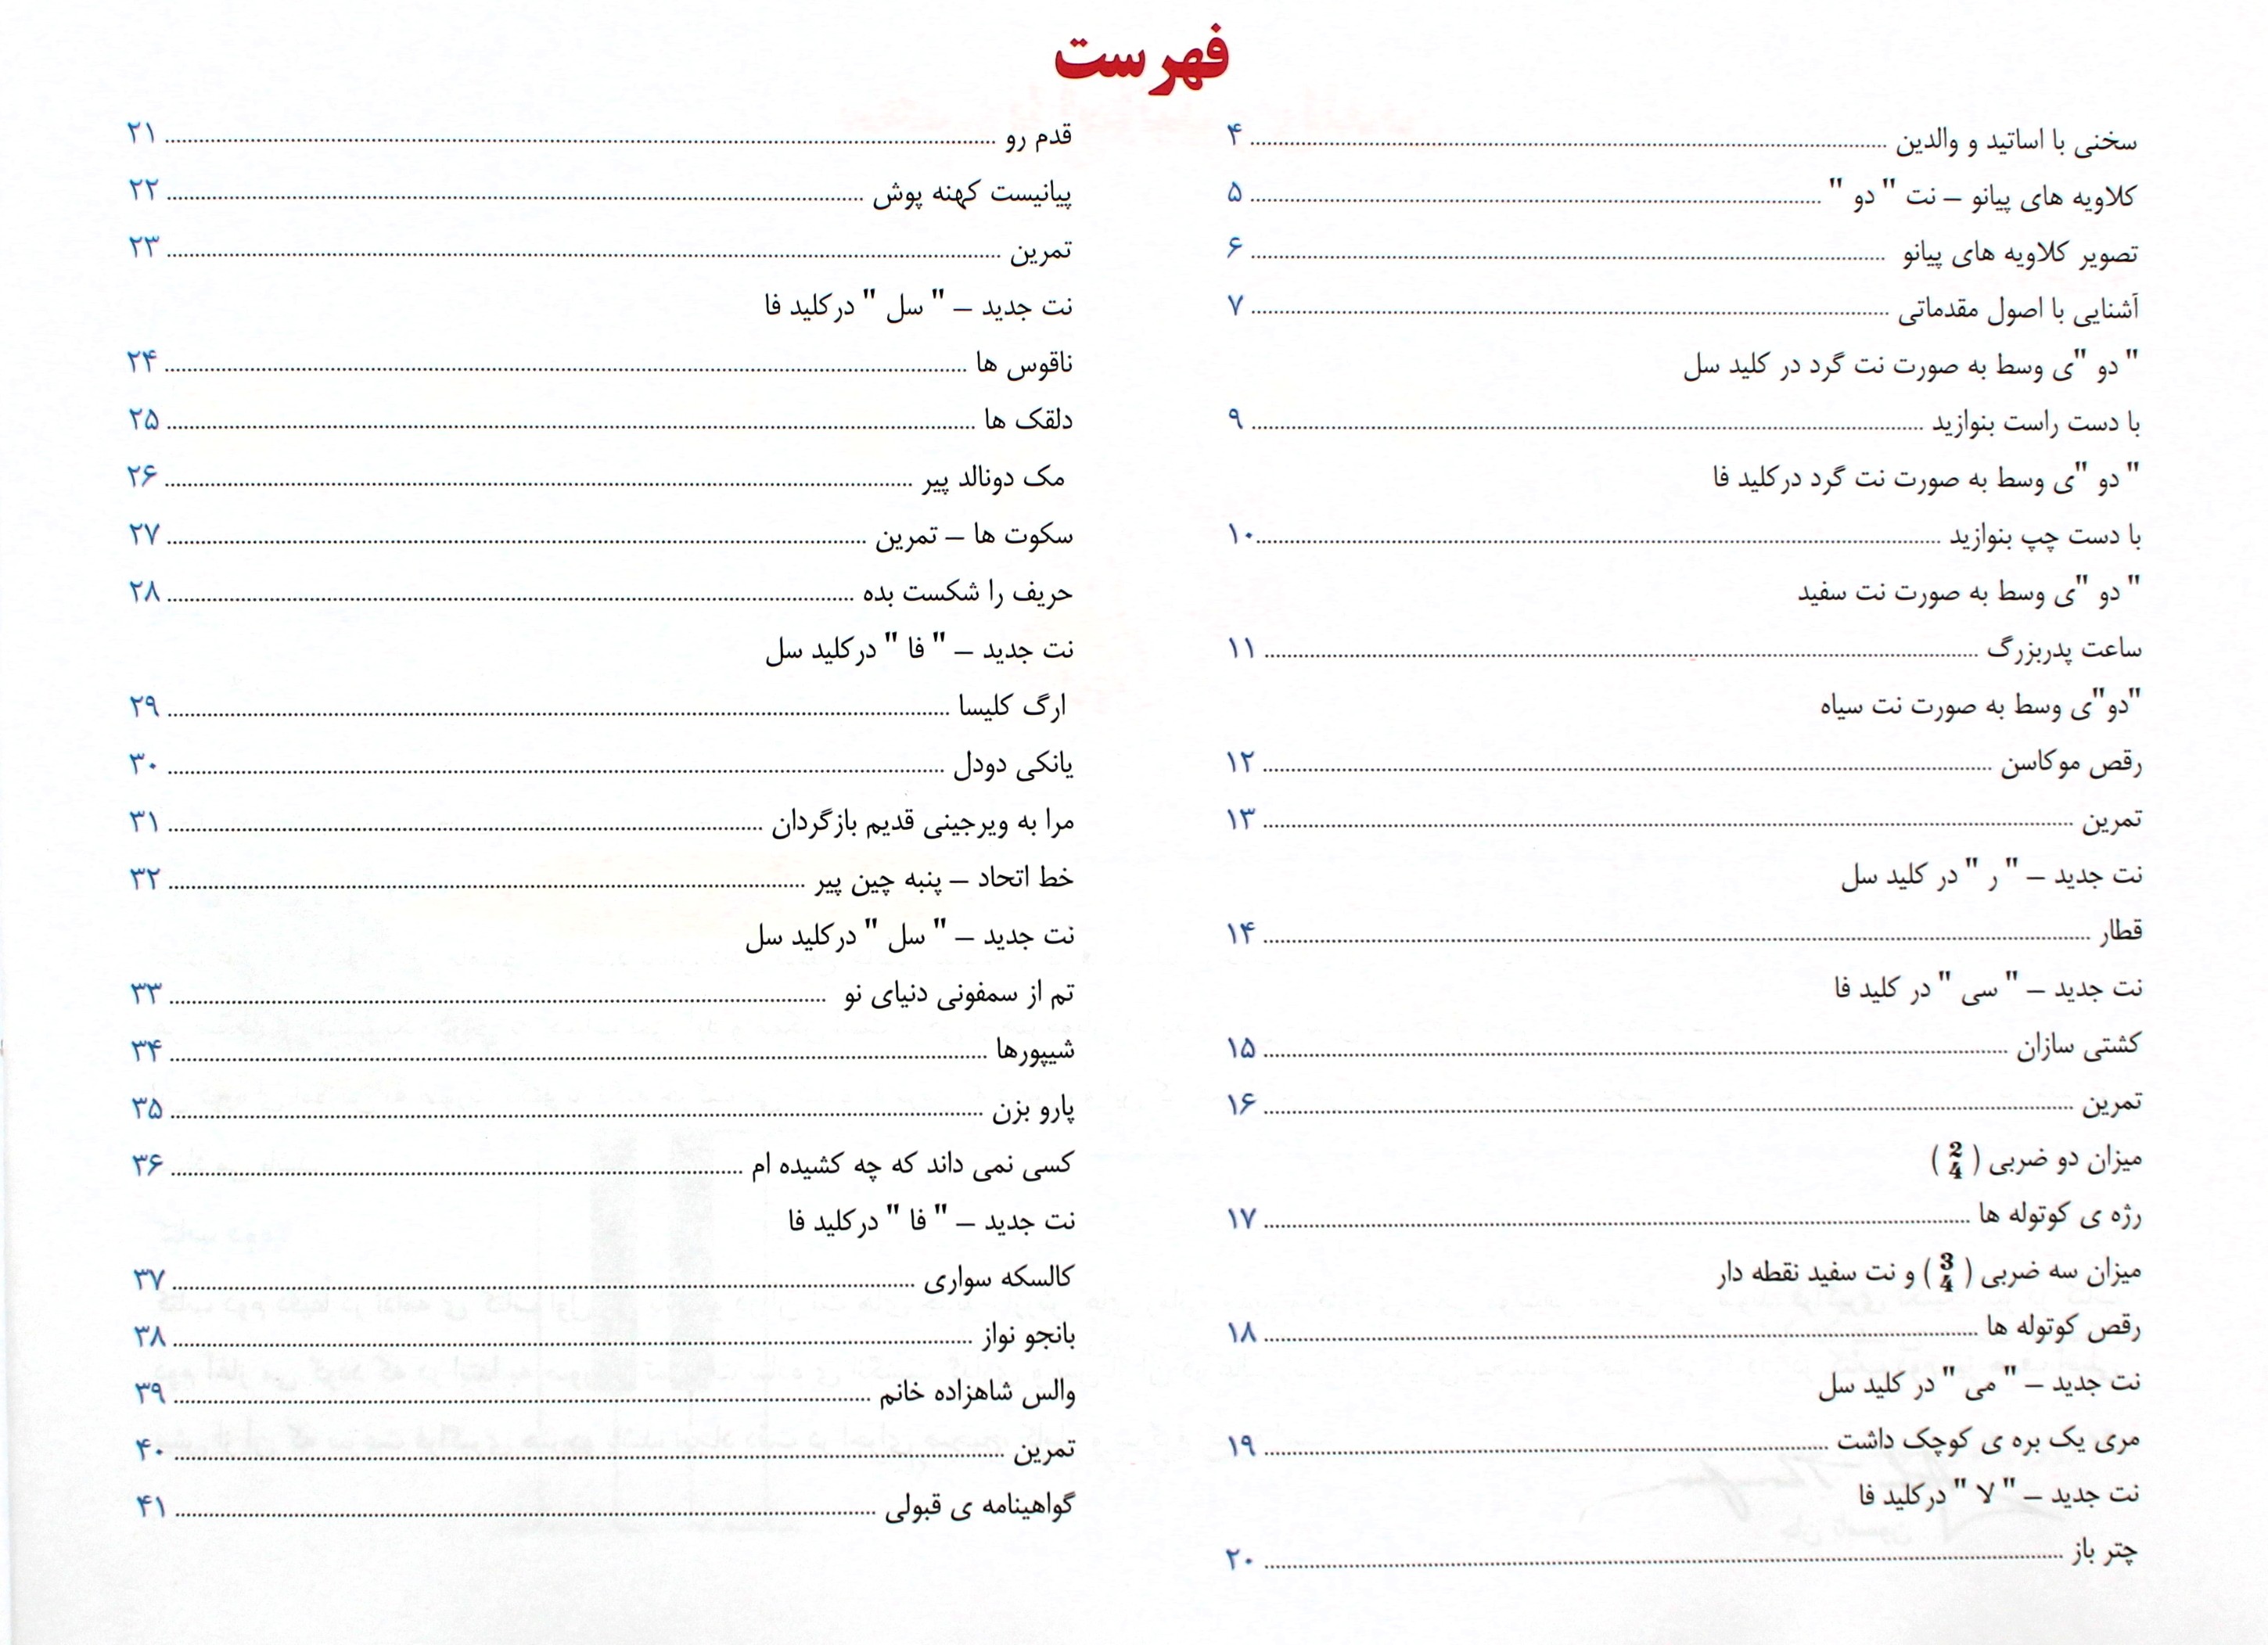 فهرست
سخنی با اساتید و والدین ۴
کلاویه های پیانو – نت " دو " ۵
تصویر کلاویه های پیانو ۶
آشنایی با اصول مقدماتی ۷
" دو "ی وسط به صورت نت گرد در کلید سل
با دست راست بنوازید ۹
" دو "ی وسط به صورت نت گرد درکلید فا
با دست چپ بنوازید ۱۰
" دو "ی وسط به صورت نت سفید
ساعت پدربزرگ ۱۱
"دو"ی وسط به صورت نت سیاه
رقص موکاسن ۱۲
تمرین ۱۳
نت جدید – " ر " در کلید سل
قطار ۱۴
نت جدید – " سی " در کلید فا
کشتی سازان ۱۵
تمرین ۱۶
میزان دو ضربی ( 2/4 )
رژه ی کوتوله ها ۱۷
میزان سه ضربی ( 3/4 ) و نت سفید نقطه دار
رقص کوتوله ها ۱۸
نت جدید – " می " در کلید سل
مری یک بره ی کوچک داشت ۱۹
نت جدید – " لا " درکلید فا
چتر باز ۲۰
قدم رو ۲۱
پیانیست کهنه پوش ۲۲
تمرین ۲۳
نت جدید – " سل " درکلید فا
ناقوس ها ۲۴
دلقک ها ۲۵
مک دونالد پیر ۲۶
سکوت ها – تمرین ۲۷
حریف را شکست بده ۲۸
نت جدید – " فا " درکلید سل
ارگ کلیسا ۲۹
یانکی دودل ۳۰
مرا به ویرجینی قدیم بازگردان ۳۱
خط اتحاد – پنبه چین پیر ۳۲
نت جدید – " سل " درکلید سل
تم از سمفونی دنیای نو ۳۳
شیپورها ۳۴
پارو بزن ۳۵
کسی نمی داند که چه کشیده ام ۳۶
نت جدید – " فا " درکلید فا
کالسکه سواری ۳۷
بانجو نواز ۳۸
والس شاهزاده خانم ۳۹
تمرین ۴۰
گواهینامه ی قبولی ۴۱